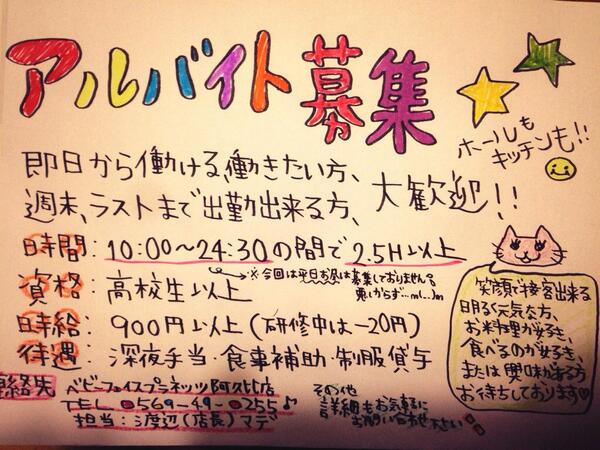 アルバイト募集
ホールも
キッチンも!!
即日から働ける働きたい方、
週末、ラストまで出勤出来る方、大歓迎!!
時間：10:00〜24:30の間で2.5H以上
※今回は平日お昼は募集しておりません。
悪しからず…m(..)m
資格：高校生以上
時給：900円以上(研修中は-20円)
待遇：深夜手当・食事補助・制服貸与
笑顔で接客出来る
明るく元気な方、
お料理が好き、
食べるのが好き、
または興味がある方
お待ちしております♡
連絡先 ベビーフェイスプラネッツ阿久比店
TEL 0569-49-0255♪
担当：渡辺(店長)マデ
その他
詳細もお気軽に
お問い合わせ下さい